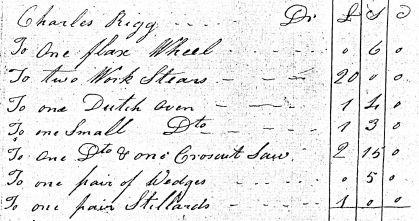 Charles Rigg Dr £ S D
To One flax Wheel 0 6 0
To two Work Stears 20 0 0
To one Dutch oven 1 4 0
To one Small Dto 1 3 0
To one Dto & one Croscut Saw 2 15 0
To one pair of Wedges 0 5 0
To one pair Stillards 1 0 0